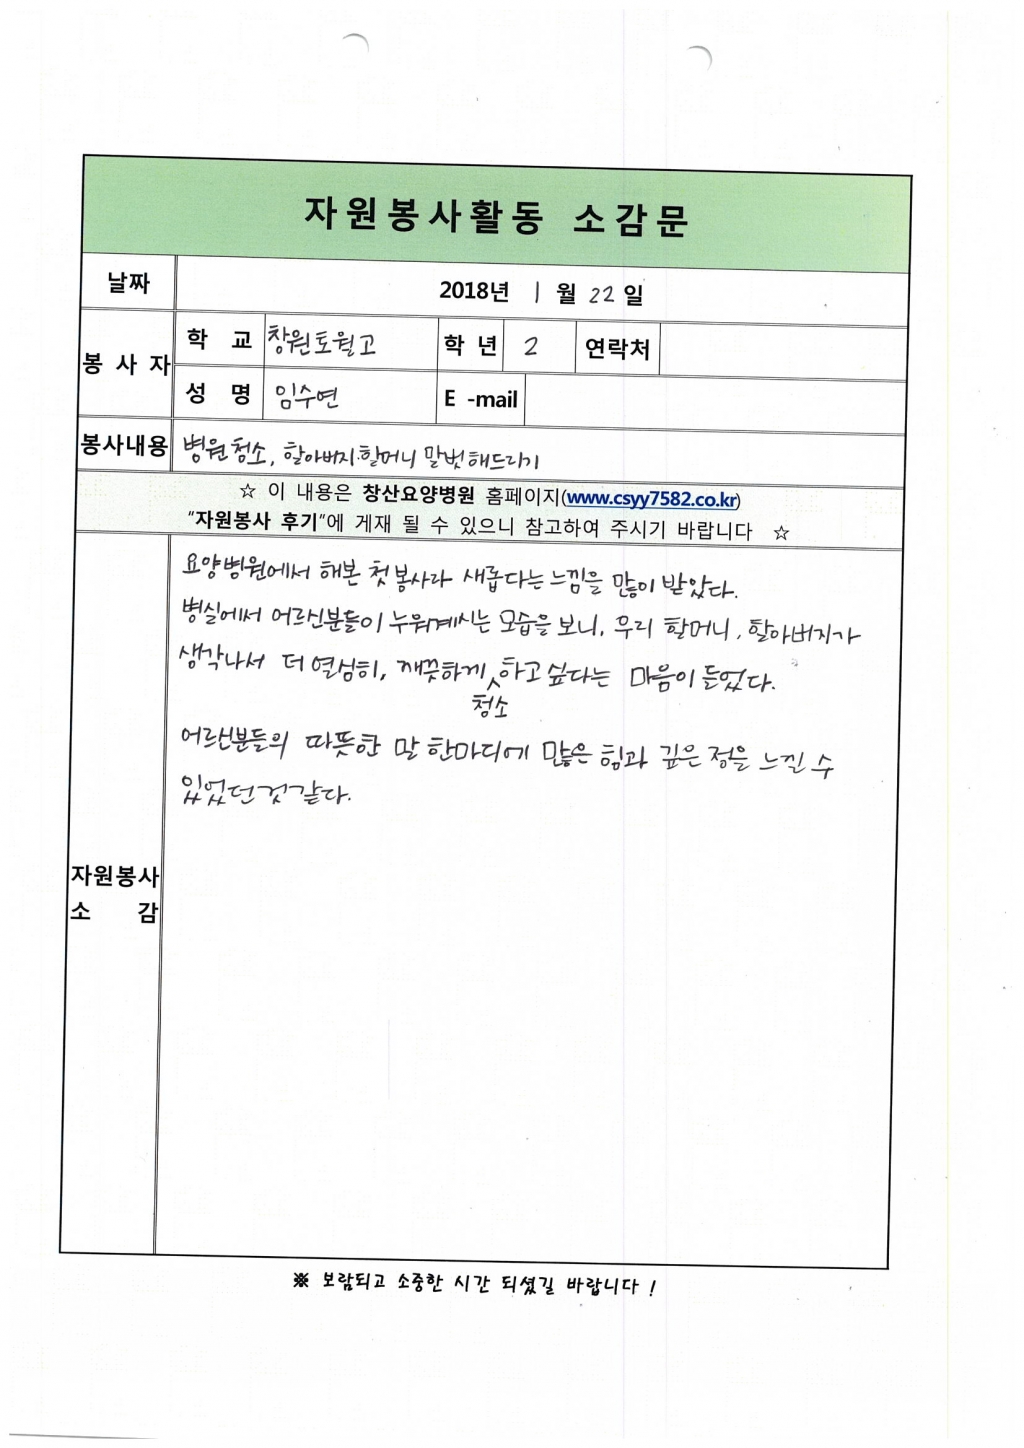 자원봉사활동 소감문
날짜
2018년 1월 22일
봉 사 자
학 교 창원토월고 학 년 2 연락처
성 명 임수연 E -mail
봉사내용 병원청소, 할아버지.할머니 말벗해드리기
☆ 이 내용은 창산요양병원 홈페이지(www.csyy7582.co.kr)
“자원봉사 후기”에 게재 될 수 있으니 참고하여 주시기 바랍니다 ☆
요양병원에서 해본 첫봉사라 새롭다는 느낌을 많이 받았다.
병실에서 어르신분들이 누워계시는 모습을 보니, 우리 할머니, 할아버지가
생각나서 더 열심히, 깨끗하게 하고싶다는 마음이 들었다.
청소
어르신분들의 따뜻한 말 한마디에 많은 힘과 깊은 정을 느낄 수
있었던것같다.
자원봉사
소 감
※ 보람되고 소중한 시간 되셨길 바랍니다 !